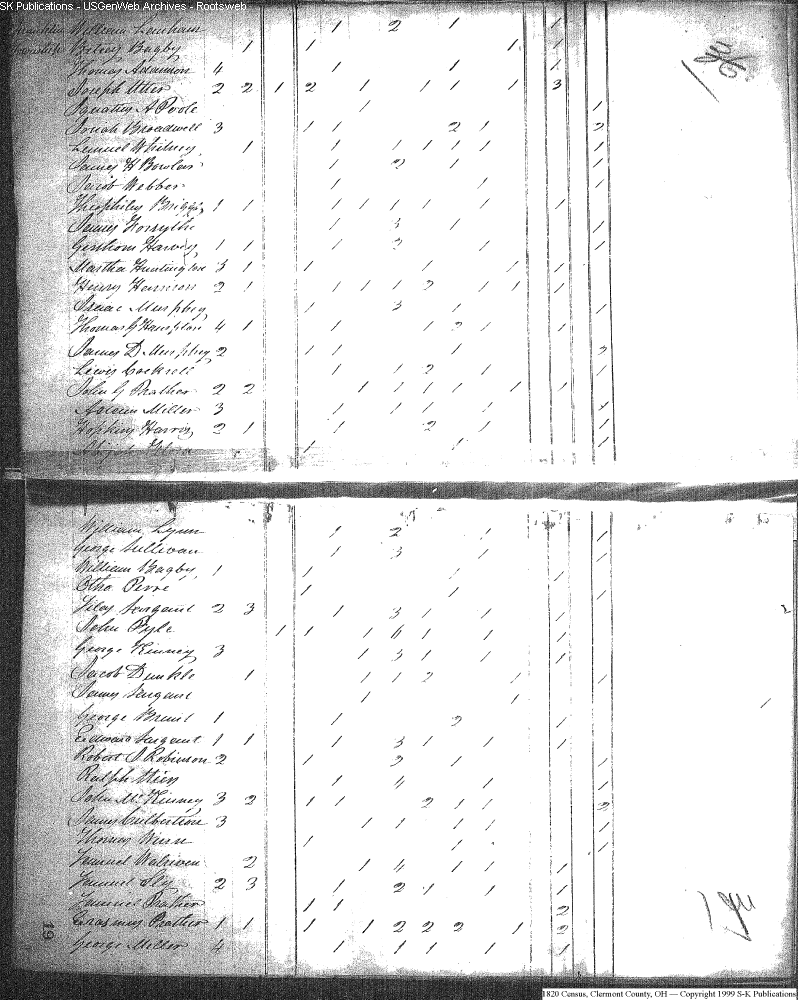 SK Publications - USGenWeb Archives - Rootsweb
William 1 2 1 1
Bagby 1 1 1 1
Thomas 4 1 1 1
Joseph Utter 2 2 1 2 1 1 1 1 3
Ignatius A Poole 1 1
Jonah Broadwell 3 1 1 2 1 2
Lemuel Whitney 1 1 1 1 1 1 1
James H Bowlers 1 2 1 1
Jacob Webber 1 1 1
Theophiles Briggs 1 1 1 1 1 1 1 1
James Forsythe 1 3 1 1
Gershom Harvey 1 1 1 3 1 1
Martha Huntington 3 1 1 1 1 1
Henry Harrison 2 1 1 1 1 2 1 1 1
Isaac Murphey 1 3 1 1
Thomas G Hampton 4 1 1 1 2 1 1
James D Murphey 2 1 1 1 2
Lewis Cockrell 1 1 2 1 1
John G Prather 2 2 1 1 1 1 1 1
Miller 3 1 1 1 1 1
Hopkins Harris 2 1 1 2 1 1
Abijah 1 1 1
William Lynn 1 2 1 1
George Sullivan 1 3 1 1
William Bagby 1 1 1 1
Otho 1 1 1
Silas Sargant 2 3 1 3 1 1 1
John Pyle 1 1 1 4 1 1 1
George Kinney 3 1 3 1 1 1
Jacob Dunkle 1 1 1 2 1 1
James Sargant 1 1 1
George 1 1 2 1
Edward Sargant 1 1 1 3 1 1 1
Robert J Robinson 2 1 2 1 1
Ralph 1 4 1 1
John McKinney 3 2 1 1 2 1 1 2
James Culbertson 3 1 1 1 1 1
Thomas 1 1 1
Samuel 2 1 4 1 1 1
Samuel 2 3 1 2 1 1 1
Samuel Prather 1 1 2
Erasmus Prather 1 1 1 1 2 2 2 1 2
George Miller 4 1 1 1 1 1
19
1820 Census, Clermont County, OH — Copyright 1999 S-K Publications